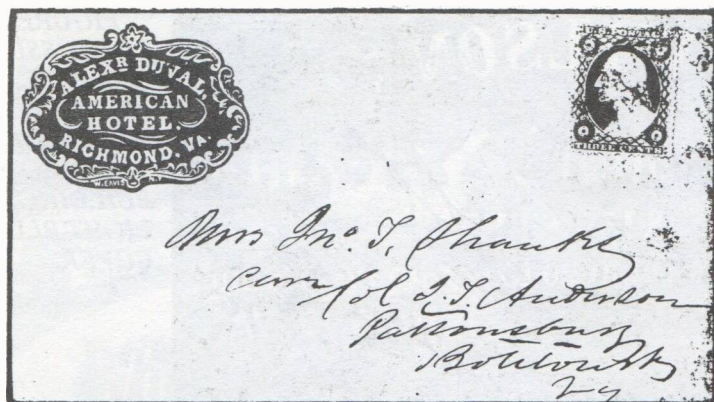 ALEXR DUVAL,
AMERICAN
HOTEL.
RICHMOND, VA.
W. EAVES N.Y.
THREE CENTS
Mrs Jno. T. Shanks
Care Col J. T. Anderson
Pattonsburg
Va